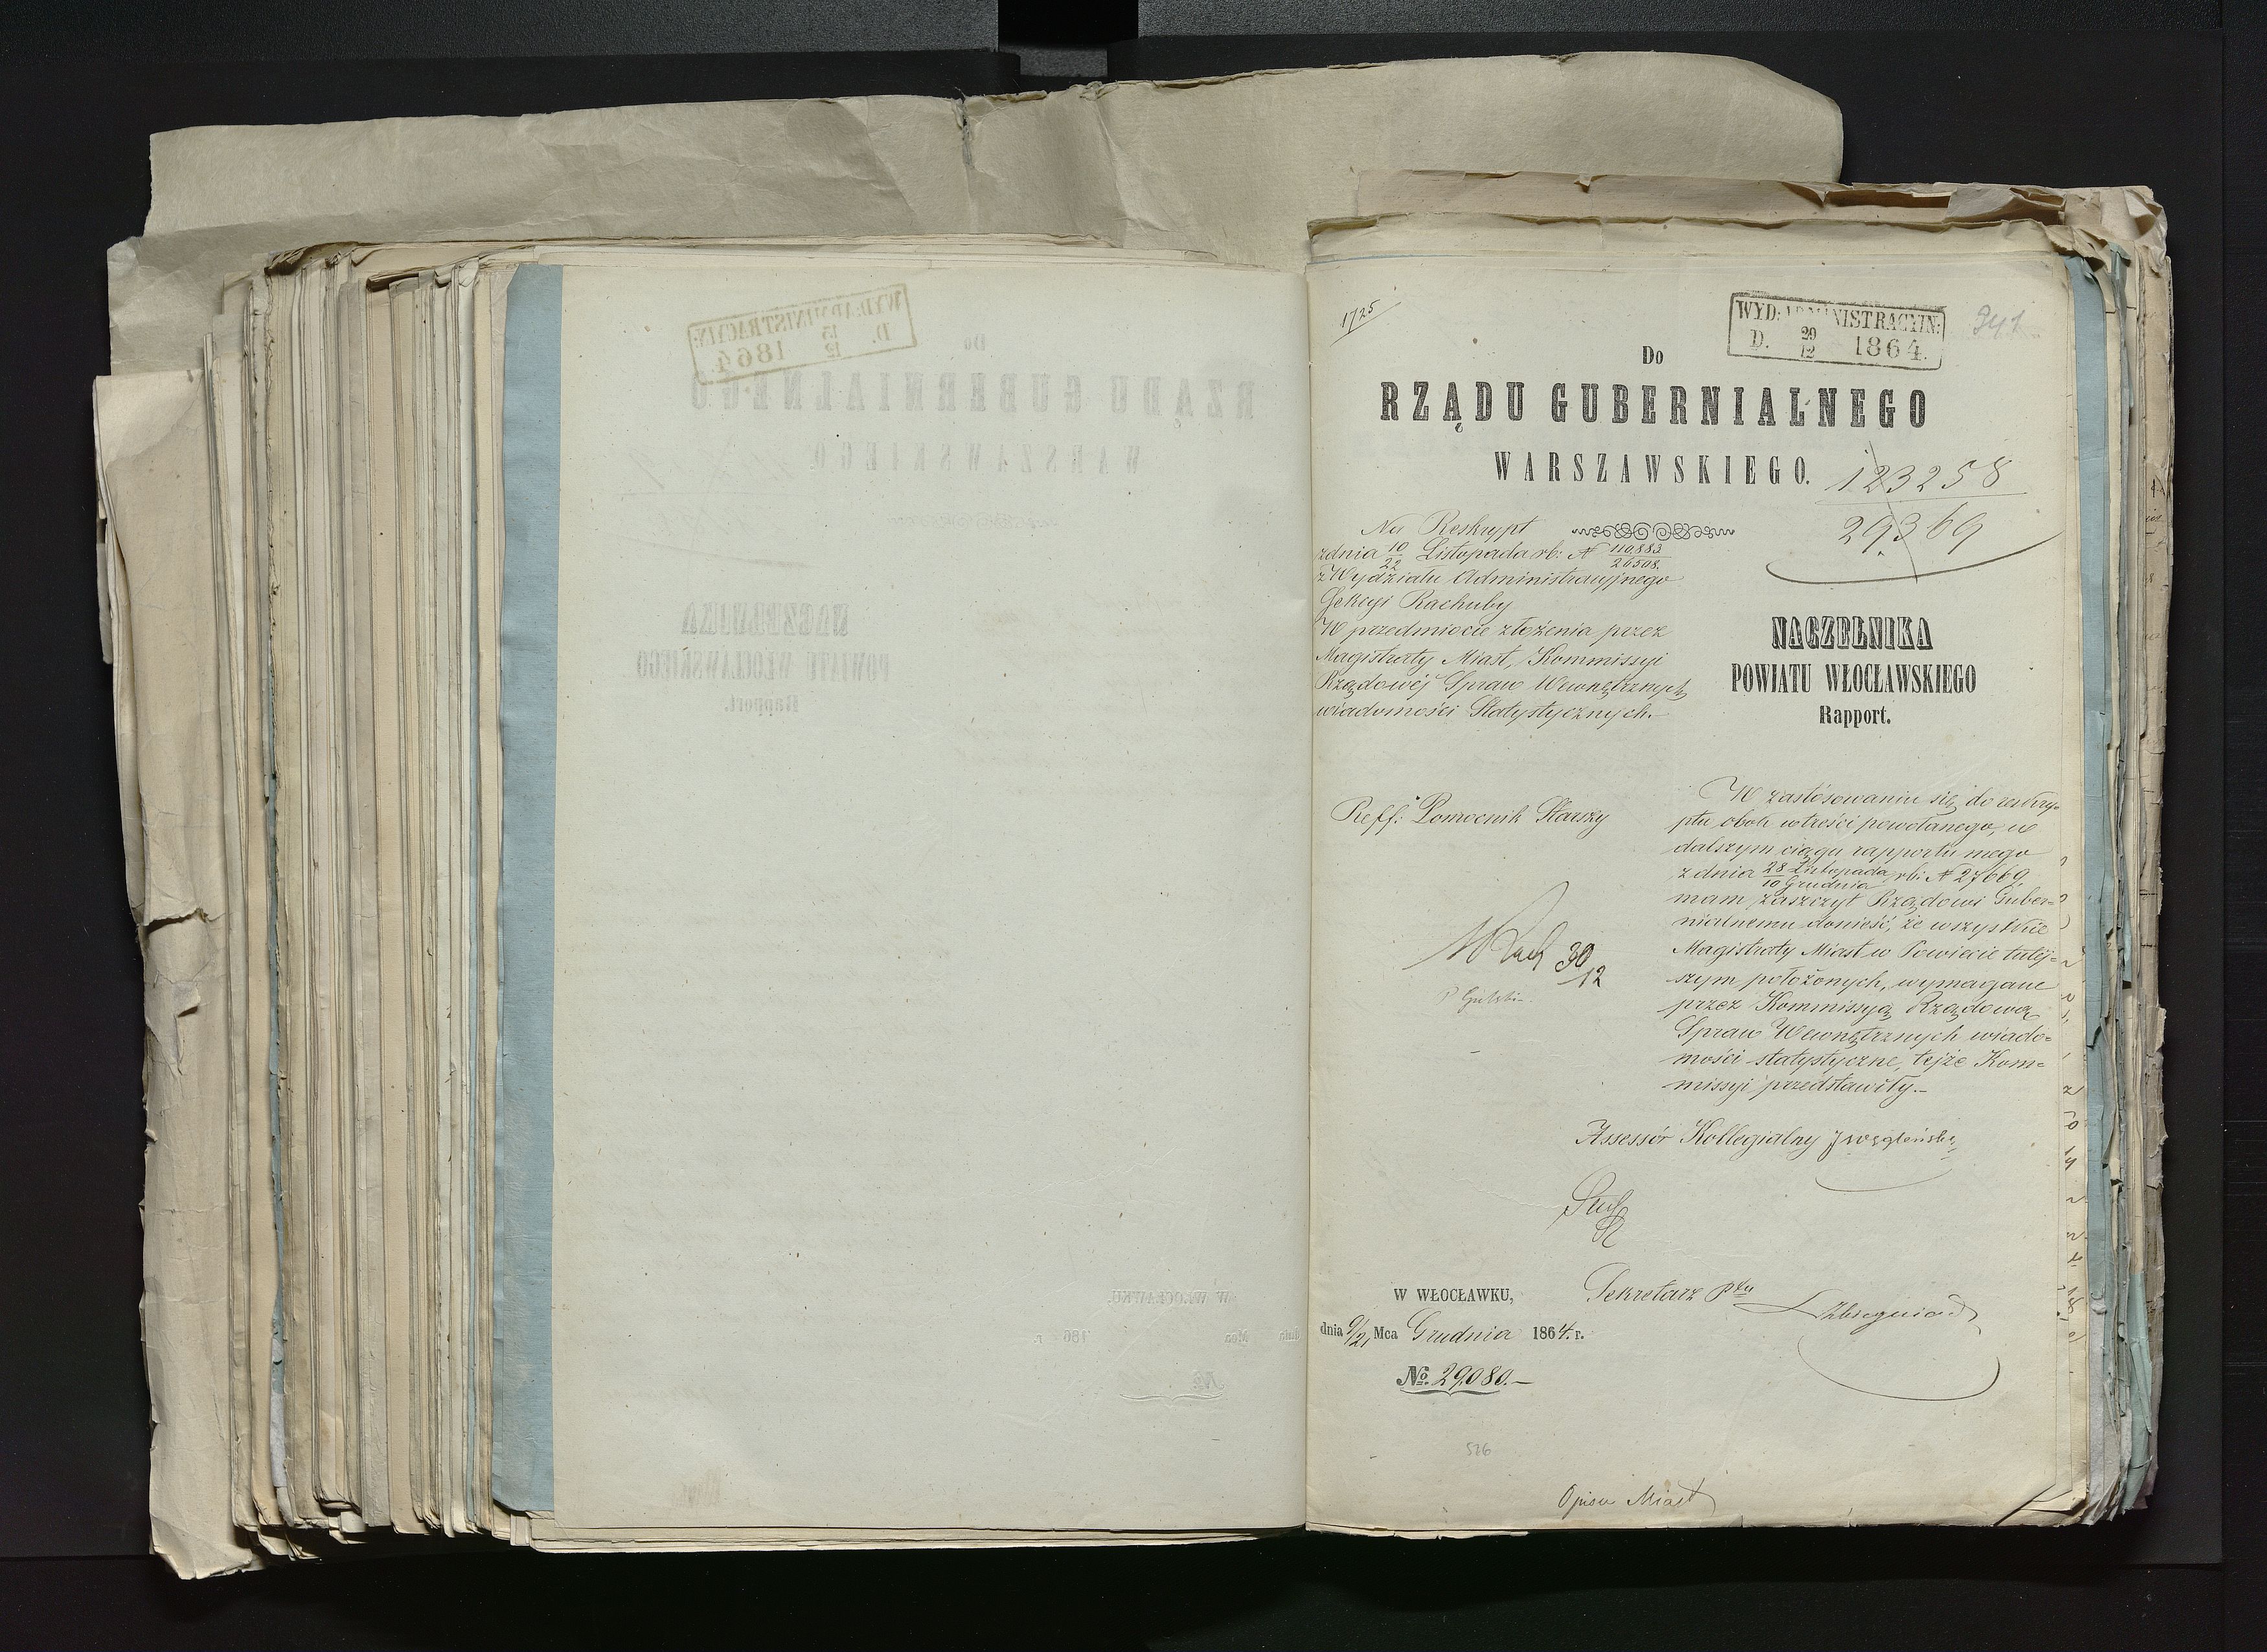 1725
WYD: ADMINISTRACYJN:
D. 29/12 1864.
341
Do
RZĄDU GUBERNIALNEGO
WARSZAWSKIEGO.
123258
29369
Na Reskrypt
z dnia 10/22 Listopada rb: N 110883/26508.
z Wydziału Administracyjnego
Sekcyi Rachuby
W przedmiocie złożenia przez
Magistraty Miast, Kommissyi
Rządowéj Spraw Wewnętrznych
wiadomości Statystycznych.-
NACZELNIKA
POWIATU WŁOCŁAWSKIEGO
Rapport.
Reff: Pomocnik Starszy
W zastósowaniu się do reskry-
ptu obok w treści powołanego, w
dalszym ciągu rapportu mego
z dnia 28 Listopada/10 Grudnia rb: N 27669,
mam zaszczyt Rządowi Guber=
nialnemu donieść, że wszystkie
Magistraty Miast w Powiecie tutéj=
szym położonych, wymagane
przez Kommissyą Rządową
Spraw Wewnętrznych wiado=
mości statystyczne, tejże Kom=
missyi przedstawiły.-
30/12
Assessór Kollegialny
Sekretarz Ptu
W WŁOCŁAWKU,
dnia 9/21 Mca Grudnia 1864. r.
No. 29080.-
526
Opisu Miast